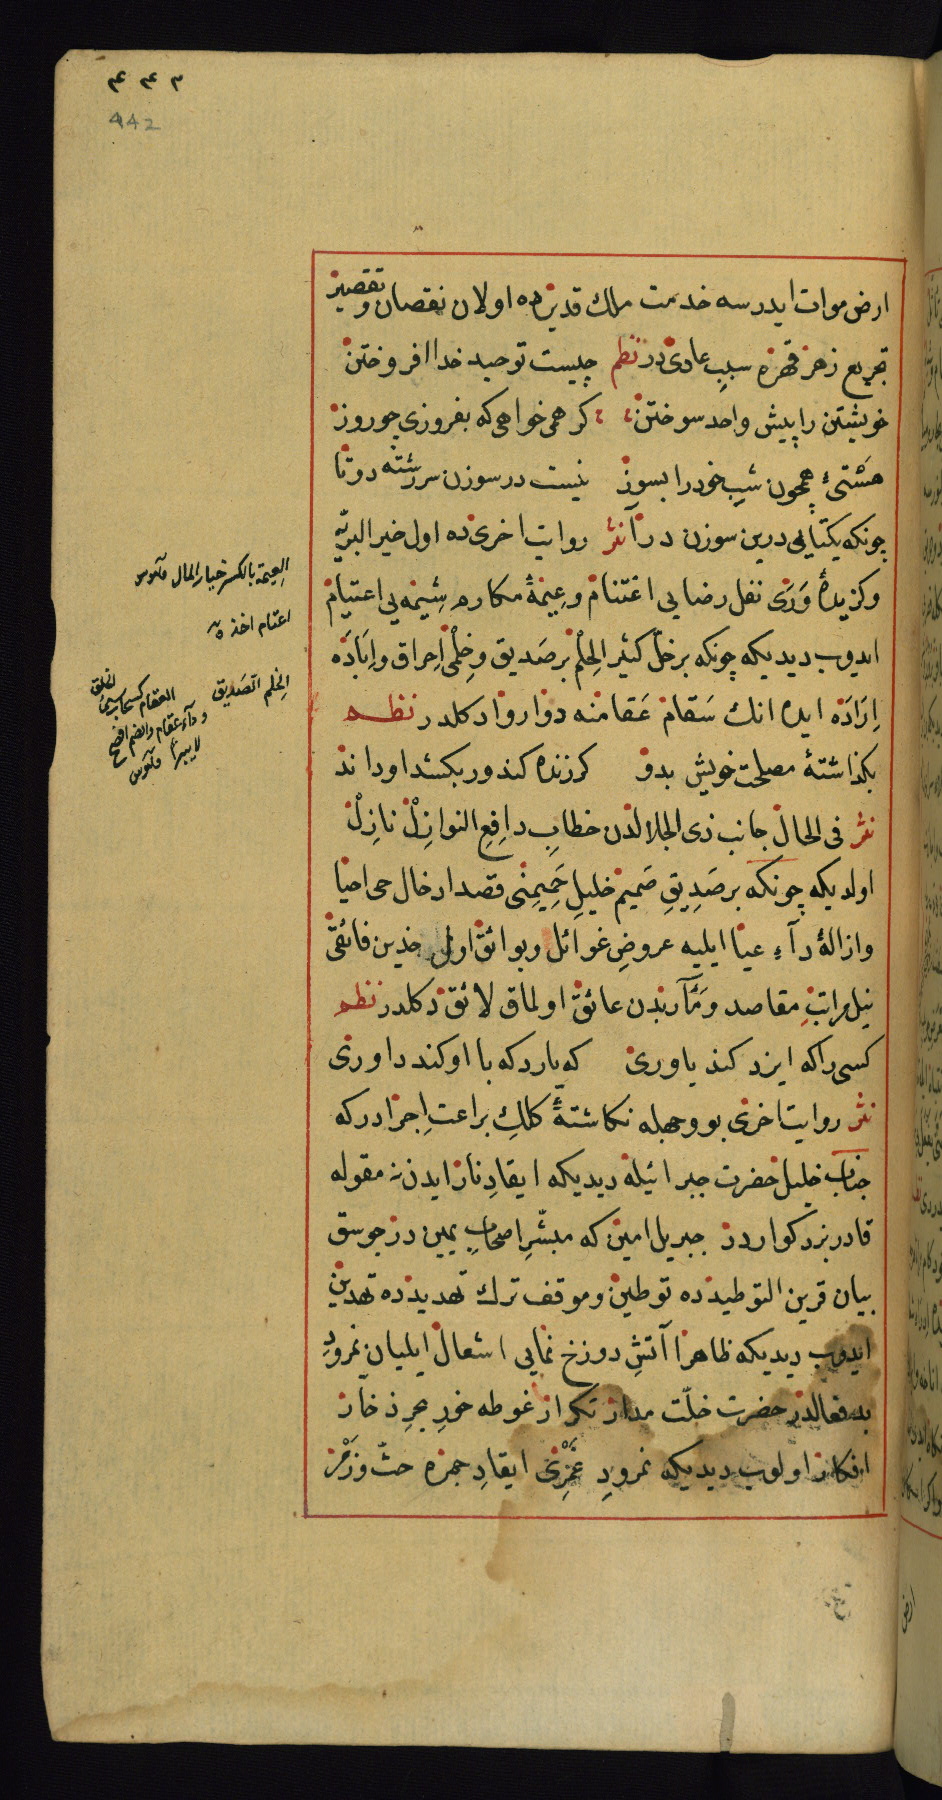 ۴۴۳
442
ارض موات ایدرسه خدمت ملك قدیرده اولان نقصان و تقصیر
تجریع زهر قهره سبب عادی در نظم چیست توحید خدا افروختن
خویشتن را پیش واحد سوختن کر همی خواهی که بفروزی چو روز
هستئ همچون شب خود را بسوز نیست در سوزن سررشته دوتا
چونکه یکتایی درین سوزن درآ نثر روایت اخری ده اول خیر البریه
وکزیدهٔ وری نفل رضایی اغتنام وعیمهٔ مکارم شیمه یی اعتیام
ایدوب دیدیکه چونکه بر خل کثیر الحلم بر صدیق وخلمی احراق واباده
اراده ایده انك سقام عقامنه دوا روا دکلدر نظم
بکذاشتهٔ مصلحت خویش بدو کر زنده کند ور بکشد او داند
نثر فی الحال جانب ذی الجلالدن خطاب دافع النوازل نازل
اولدیکه چونکه بر صدیق صمیم خلیل حمیمنی قصد ادخال حی احیا
وازالهٔ دآء عیا ایلیه عروض غوائل وبوائق اول خدین فائقی
نیل مراتب مقاصد ومآربدن عائق اولماق لائق دکلدر نظم
کسی را که ایزد کند یاوری که یارد که با او کند داوری
نثر روایت اخری بو وجهله نکاشتهٔ کلك براعت اجزادرکه
جناب خلیل حضرت جبرائیله دیدیکه ایقاد نار ایدن نه مقوله
قادر بزرکواردر جبریل امین که مبشر اصحاب یمین در جوسق
بیان قرین التوطیدده توطین وموقف ترك تهدیدده تهدین
ایدوب دیدیکه ظاهرا آتش دوزخ نمایی اشعال ایلیان نمرود
بدفعالدر حضرت خلت مدار تکرار غوطه خور بحر ذخار
افکار اولوب دیدیکه نمرود غمزنی ایقاد جمره حث ورمز
العیمة بالکسر خیار المال قاموس
اعتام اخذ
الخلم الصدیق
العقام کسحاب
ودآء عقام والضم افصح
لا یبرأ قاموس
ارض